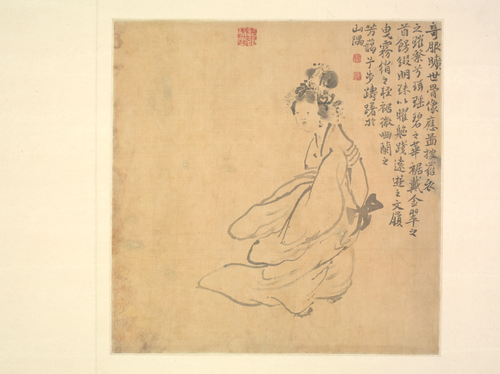 奇服曠世骨像應圖披羅衣
之璀粲兮珥瑤碧之華琚戴金翠之
首飾綴明珠以耀軀踐遠遊之文履
曳霧綃之輕裾微幽蘭之
芳藹兮步躊躇於
山隅